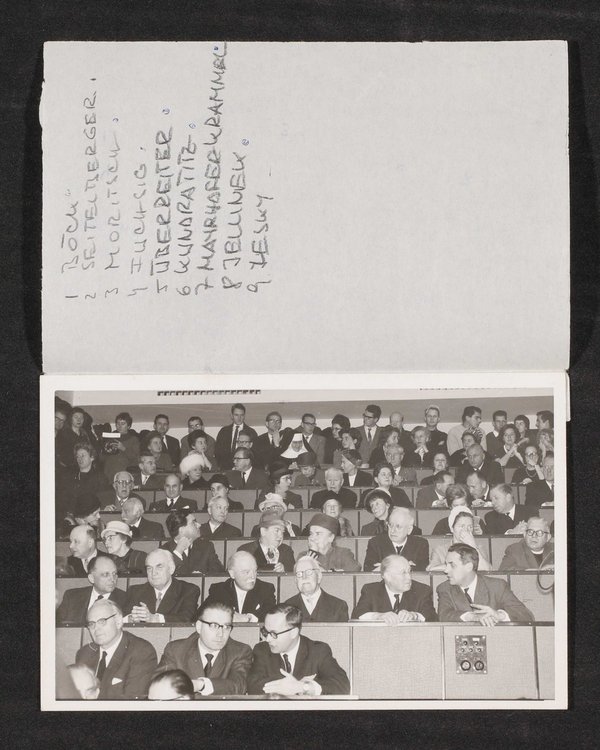 1 BÖCK
2 SEITELBERGER.
3 MORITSCH.
4 FUCHSIG.
5 ÜBERREITER.
6 KUNDRATITZ.
7 MAYRHOFER KRAMMEL.
8 JELLINEK.
9 HESKY